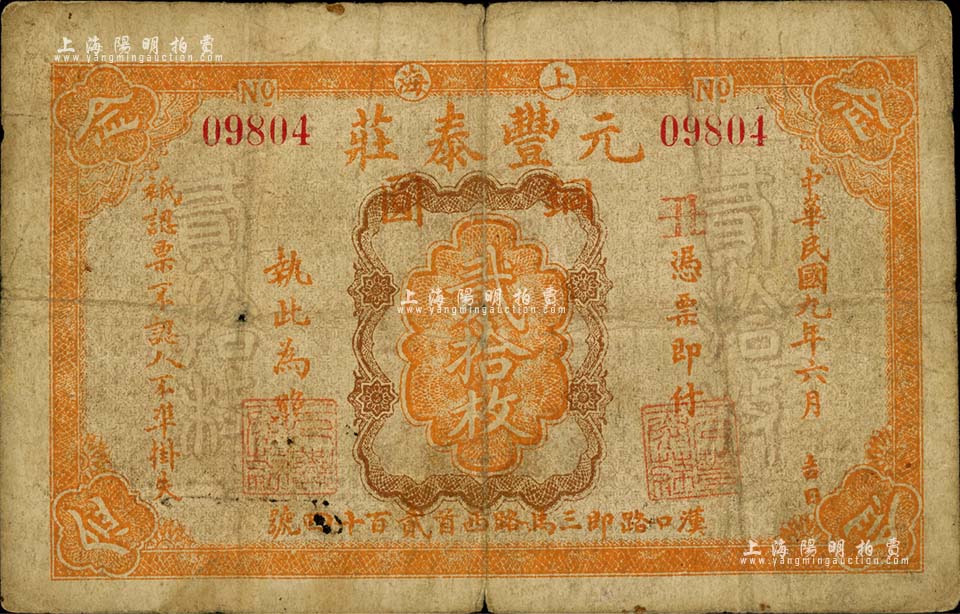 上海陽明拍賣
www.yangmingauction.com
上海
No
No
09804
元豐泰莊
09804
中華民國九年六月 吉日
憑票即付
銅圓
貳拾枚
執此為照
紙認票不認人不準掛失
漢口路即三馬路西首貳百十四號
上海陽明拍賣
www.yangmingauction.com
上海陽明拍賣
www.yangmingauction.com